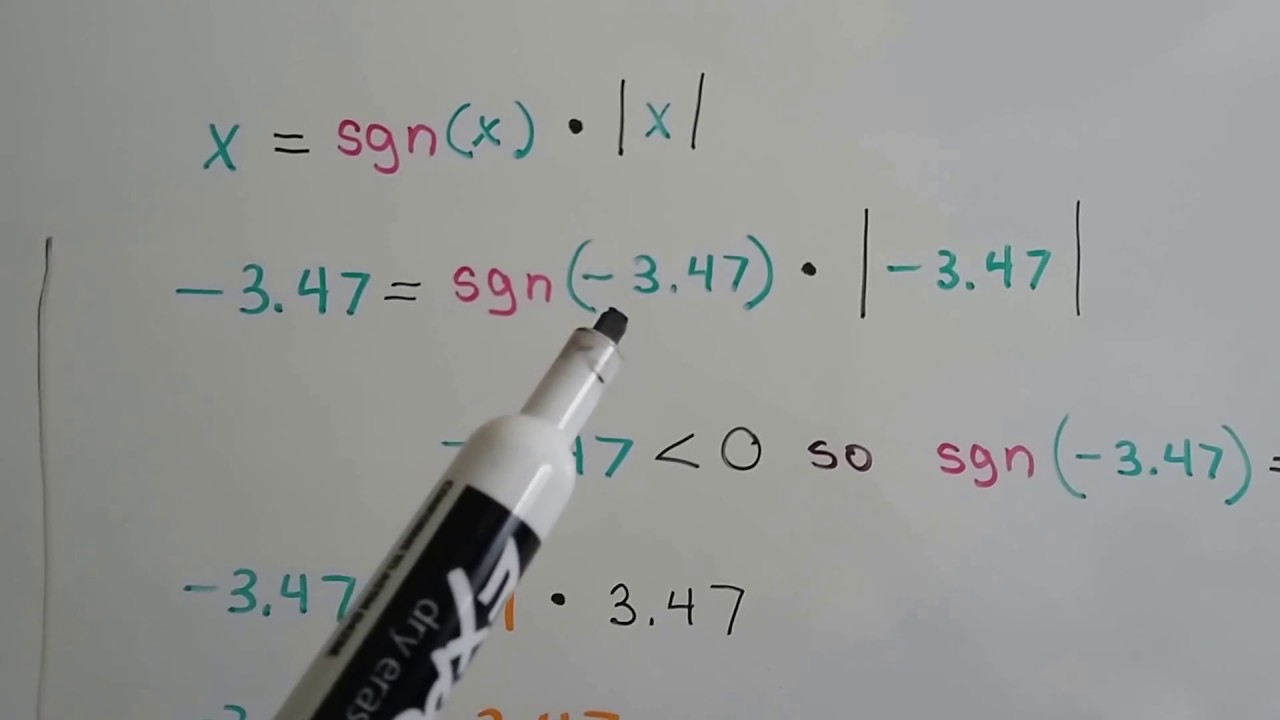 x = sgn(x) • |x|
-3.47 = sgn(-3.47) • |-3.47|
47 < 0 so sgn(-3.47) =
-3.47 • 3.47
EXPO
dry eras